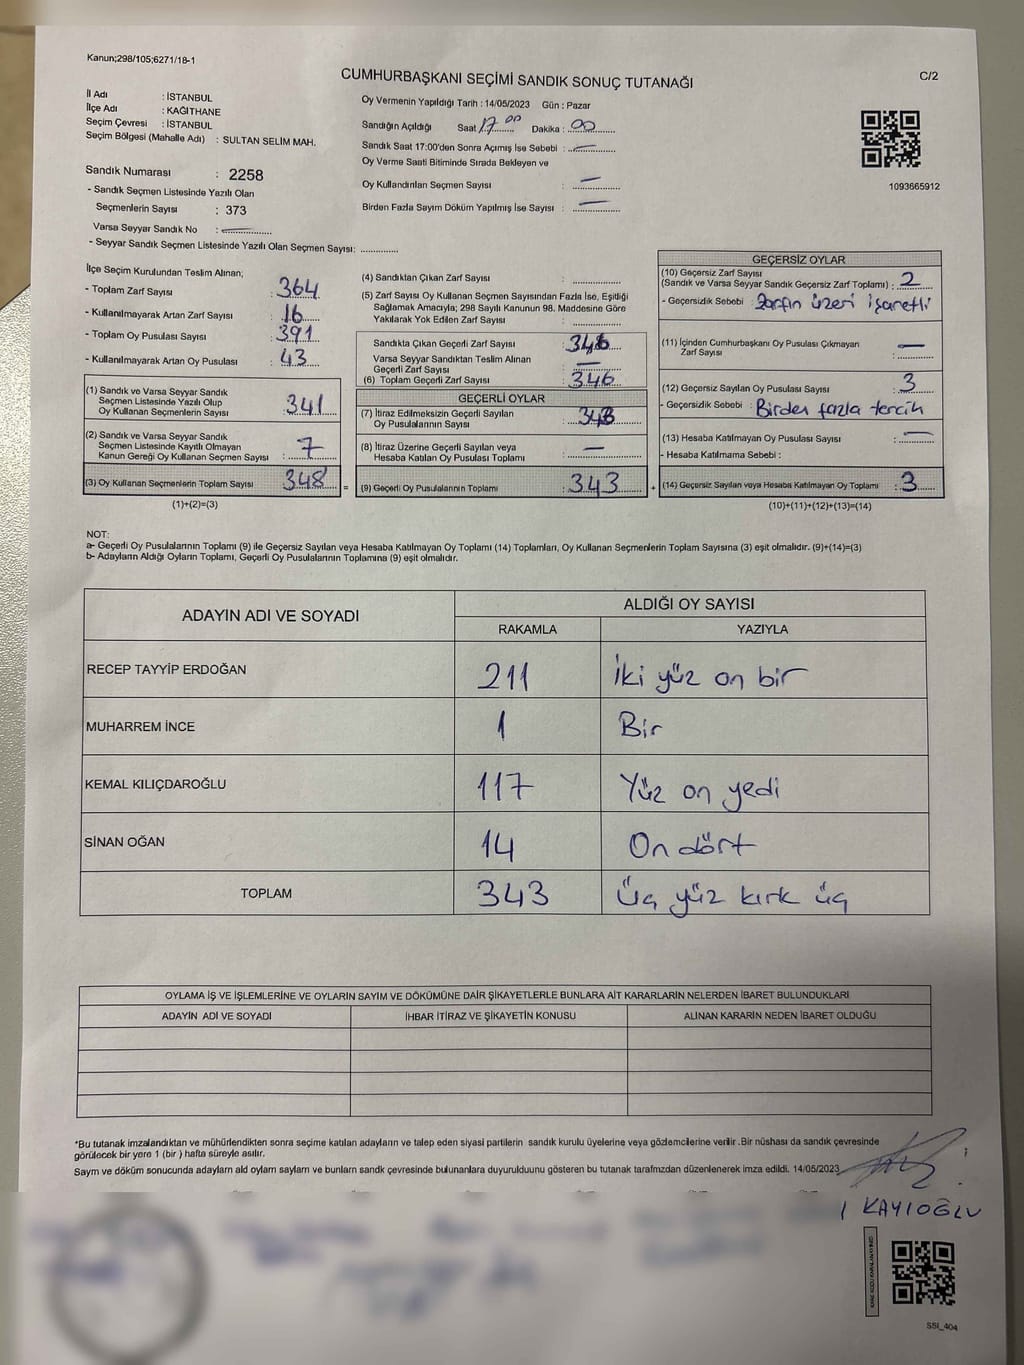 Kanun;298/105;6271/18-1
CUMHURBAŞKANI SEÇİMİ SANDIK SONUÇ TUTANAĞI
C/2
İl Adı : İSTANBUL
İlçe Adı : KAĞITHANE
Seçim Çevresi : İSTANBUL
Seçim Bölgesi (Mahalle Adı) : SULTAN SELİM MAH.
Sandık Numarası : 2258
- Sandık Seçmen Listesinde Yazılı Olan
Seçmenlerin Sayısı : 373
Varsa Seyyar Sandık No :
- Seyyar Sandık Seçmen Listesinde Yazılı Olan Seçmen Sayısı:
Oy Vermenin Yapıldığı Tarih : 14/05/2023 Gün : Pazar
Sandığın Açıldığı Saat 17.00 Dakika : 00
Sandık Saat 17:00'den Sonra Açımış İse Sebebi : —
Oy Verme Saati Bitiminde Sırada Bekleyen ve
Oy Kullandırılan Seçmen Sayısı : —
Birden Fazla Sayım Döküm Yapılmış İse Sayısı : —
1093665912
İlçe Seçim Kurulundan Teslim Alınan;
- Toplam Zarf Sayısı : 364
- Kullanılmayarak Artan Zarf Sayısı : 16
- Toplam Oy Pusulası Sayısı : 391
- Kullanılmayarak Artan Oy Pusulası : 43
(1) Sandık ve Varsa Seyyar Sandık
Seçmen Listesinde Yazılı Olup
Oy Kullanan Seçmenlerin Sayısı : 341
(2) Sandık ve Varsa Seyyar Sandık
Seçmen Listesinde Kayıtlı Olmayan
Kanun Gereği Oy Kullanan Seçmen Sayısı : 7
(3) Oy Kullanan Seçmenlerin Toplam Sayısı : 348 =
(1)+(2)=(3)
(4) Sandıktan Çıkan Zarf Sayısı :
(5) Zarf Sayısı Oy Kullanan Seçmen Sayısından Fazla İse, Eşitliği
Sağlamak Amacıyla; 298 Sayılı Kanunun 98. Maddesine Göre
Yakılarak Yok Edilen Zarf Sayısı :
Sandıkta Çıkan Geçerli Zarf Sayısı : 346
Varsa Seyyar Sandıktan Teslim Alınan
Geçerli Zarf Sayısı : —
(6) Toplam Geçerli Zarf Sayısı : 346
GEÇERLİ OYLAR
(7) İtiraz Edilmeksizin Geçerli Sayılan
Oy Pusulalarının Sayısı : 343
(8) İtiraz Üzerine Geçerli Sayılan veya
Hesaba Katılan Oy Pusulası Toplamı : —
(9) Geçerli Oy Pusulalarının Toplamı : 343 +
GEÇERSİZ OYLAR
(10) Geçersiz Zarf Sayısı
(Sandık ve Varsa Seyyar Sandık Geçersiz Zarf Toplamı) : 2
- Geçersizlik Sebebi : Zarfın üzeri işaretli
(11) İçinden Cumhurbaşkanı Oy Pusulası Çıkmayan
Zarf Sayısı : —
(12) Geçersiz Sayılan Oy Pusulası Sayısı : 3
- Geçersizlik Sebebi : Birden fazla tercih
(13) Hesaba Katılmayan Oy Pusulası Sayısı : —
- Hesaba Katılmama Sebebi :
(14) Geçersiz Sayılan veya Hesaba Katılmayan Oy Toplamı : 3
(10)+(11)+(12)+(13)=(14)
NOT:
a- Geçerli Oy Pusulalarının Toplamı (9) ile Geçersiz Sayılan veya Hesaba Katılmayan Oy Toplamı (14) Toplamları, Oy Kullanan Seçmenlerin Toplam Sayısına (3) eşit olmalıdır. (9)+(14)=(3)
b- Adayların Aldığı Oyların Toplamı, Geçerli Oy Pusulalarının Toplamına (9) eşit olmalıdır.
ADAYIN ADI VE SOYADI
ALDIĞI OY SAYISI
RAKAMLA YAZIYLA
RECEP TAYYİP ERDOĞAN 211 İki yüz on bir
MUHARREM İNCE 1 Bir
KEMAL KILIÇDAROĞLU 117 Yüz on yedi
SİNAN OĞAN 14 On dört
TOPLAM 343 Üç yüz kırk üç
OYLAMA İŞ VE İŞLEMLERİNE VE OYLARIN SAYIM VE DÖKÜMÜNE DAİR ŞİKAYETLERLE BUNLARA AİT KARARLARIN NELERDEN İBARET BULUNDUKLARI
ADAYIN ADI VE SOYADI İHBAR İTİRAZ VE ŞİKAYETİN KONUSU ALINAN KARARIN NEDEN İBARET OLDUĞU
*Bu tutanak imzalandıktan ve mühürlendikten sonra seçime katılan adayların ve talep eden siyasi partilerin sandık kurulu üyelerine veya gözlemcilerine verilir .Bir nüshası da sandık çevresinde
görülecek bir yere 1 (bir ) hafta süreyle asılır.
Sayım ve döküm sonucunda adayların ald oyların sayların ve bunların sandk çevresinde bulunanlara duyurulduunu gösteren bu tutanak tarafmzdan düzenlenerek imza edildi. 14/05/2023
KAYIOĞLU
SSI_404